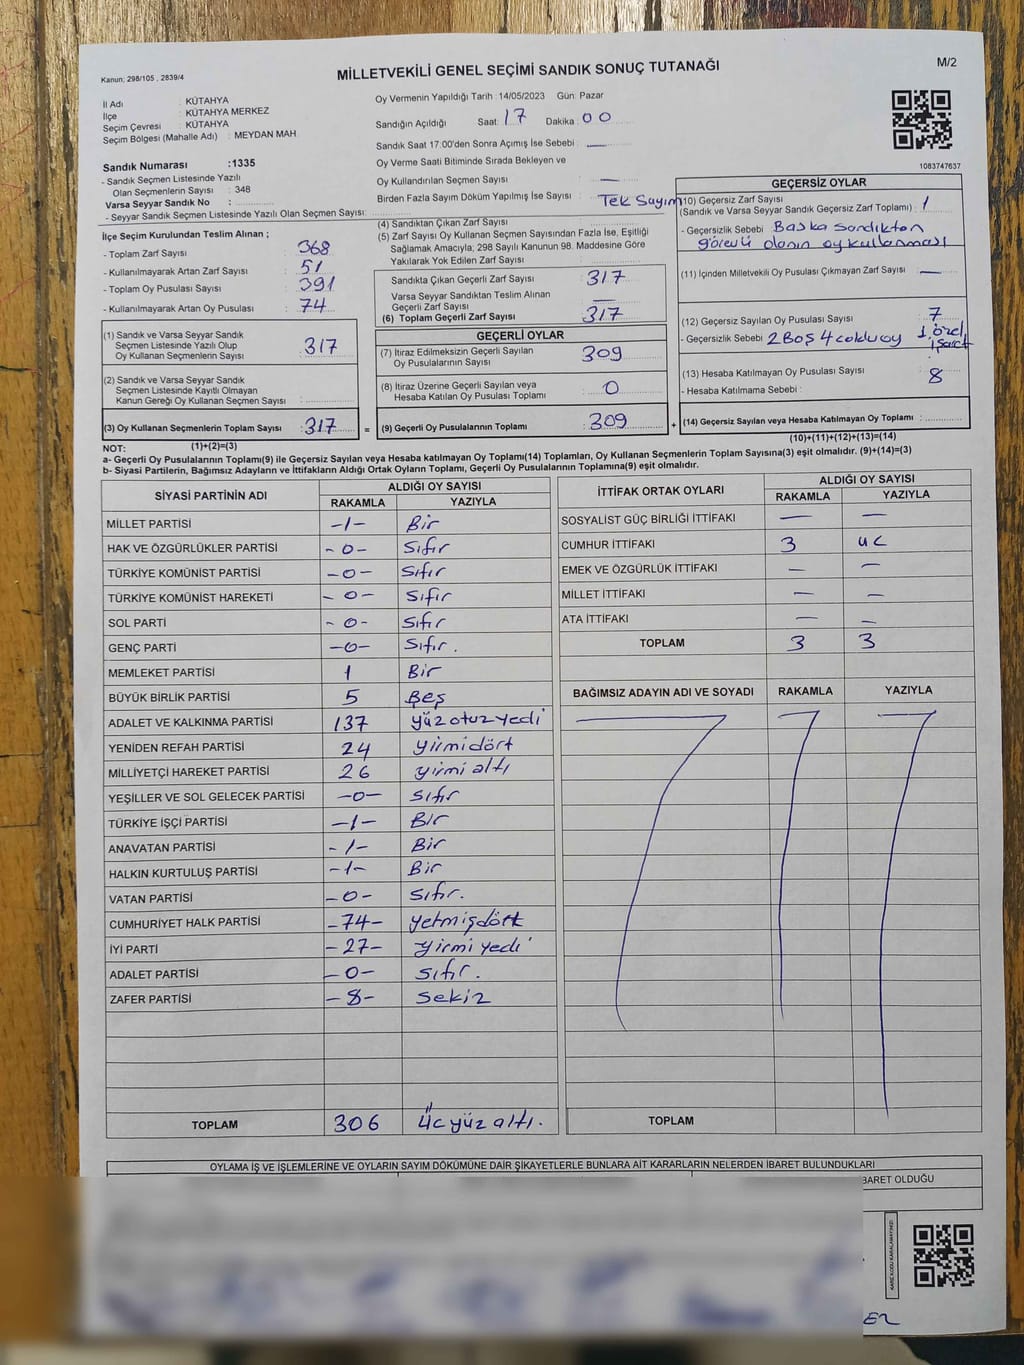 Kanun; 298/105 , 2839/4
MİLLETVEKİLİ GENEL SEÇİMİ SANDIK SONUÇ TUTANAĞI
M/2
İl Adı : KÜTAHYA
İlçe : KÜTAHYA MERKEZ
Seçim Çevresi : KÜTAHYA
Seçim Bölgesi (Mahalle Adı) : MEYDAN MAH
Sandık Numarası :1335
- Sandık Seçmen Listesinde Yazılı
Olan Seçmenlerin Sayısı : 348
Varsa Seyyar Sandık No :
- Seyyar Sandık Seçmen Listesinde Yazılı Olan Seçmen Sayısı:
Oy Vermenin Yapıldığı Tarih : 14/05/2023 Gün: Pazar
Sandığın Açıldığı Saat: 17 Dakika : 00
Sandık Saat 17:00'den Sonra Açımış İse Sebebi : —
Oy Verme Saati Bitiminde Sırada Bekleyen ve
Oy Kullandırılan Seçmen Sayısı : —
Birden Fazla Sayım Döküm Yapılmış İse Sayısı : Tek Sayım
1083747637
İlçe Seçim Kurulundan Teslim Alınan ;
- Toplam Zarf Sayısı : 368
- Kullanılmayarak Artan Zarf Sayısı : 51
- Toplam Oy Pusulası Sayısı : 391
- Kullanılmayarak Artan Oy Pusulası : 74
(1) Sandık ve Varsa Seyyar Sandık
Seçmen Listesinde Yazılı Olup
Oy Kullanan Seçmenlerin Sayısı : 317
(2) Sandık ve Varsa Seyyar Sandık
Seçmen Listesinde Kayıtlı Olmayan
Kanun Gereği Oy Kullanan Seçmen Sayısı :
(3) Oy Kullanan Seçmenlerin Toplam Sayısı : 317 =
(4) Sandıktan Çıkan Zarf Sayısı :
(5) Zarf Sayısı Oy Kullanan Seçmen Sayısından Fazla İse, Eşitliği
Sağlamak Amacıyla; 298 Sayılı Kanunun 98. Maddesine Göre
Yakılarak Yok Edilen Zarf Sayısı :
Sandıkta Çıkan Geçerli Zarf Sayısı : 317
Varsa Seyyar Sandıktan Teslim Alınan
Geçerli Zarf Sayısı : —
(6) Toplam Geçerli Zarf Sayısı : 317
GEÇERLİ OYLAR
(7) İtiraz Edilmeksizin Geçerli Sayılan
Oy Pusulalarının Sayısı : 309
(8) İtiraz Üzerine Geçerli Sayılan veya
Hesaba Katılan Oy Pusulası Toplamı : 0
(9) Geçerli Oy Pusulalarının Toplamı : 309 +
GEÇERSİZ OYLAR
(10) Geçersiz Zarf Sayısı
(Sandık ve Varsa Seyyar Sandık Geçersiz Zarf Toplamı) : 1
- Geçersizlik Sebebi : Başka Sandıkton
görevli olanın oy kullanması
(11) İçinden Milletvekili Oy Pusulası Çıkmayan Zarf Sayısı : —
(12) Geçersiz Sayılan Oy Pusulası Sayısı : 7
- Geçersizlik Sebebi : 2 Boş 4 coldu oy 1 özel işaret
(13) Hesaba Katılmayan Oy Pusulası Sayısı : 8
- Hesaba Katılmama Sebebi :
(14) Geçersiz Sayılan veya Hesaba Katılmayan Oy Toplamı :
NOT: (1)+(2)=(3) (10)+(11)+(12)+(13)=(14)
a- Geçerli Oy Pusulalarının Toplamı(9) ile Geçersiz Sayılan veya Hesaba katılmayan Oy Toplamı(14) Toplamları, Oy Kullanan Seçmenlerin Toplam Sayısına(3) eşit olmalıdır. (9)+(14)=(3)
b- Siyasi Partilerin, Bağımsız Adayların ve İttifakların Aldığı Ortak Oyların Toplamı, Geçerli Oy Pusulalarının Toplamına(9) eşit olmalıdır.
SİYASİ PARTİNİN ADI ALDIĞI OY SAYISI
RAKAMLA YAZIYLA
MİLLET PARTİSİ -1- Bir
HAK VE ÖZGÜRLÜKLER PARTİSİ -0- Sıfır
TÜRKİYE KOMÜNİST PARTİSİ -0- Sıfır
TÜRKİYE KOMÜNİST HAREKETİ -0- Sıfır
SOL PARTİ -0- Sıfır
GENÇ PARTİ -0- Sıfır.
MEMLEKET PARTİSİ 1 Bir
BÜYÜK BİRLİK PARTİSİ 5 Beş
ADALET VE KALKINMA PARTİSİ 137 yüzotuzyedi
YENİDEN REFAH PARTİSİ 24 yirmidört
MİLLİYETÇİ HAREKET PARTİSİ 26 yirmi altı
YEŞİLLER VE SOL GELECEK PARTİSİ -0- sıfır
TÜRKİYE İŞÇİ PARTİSİ -1- Bir
ANAVATAN PARTİSİ -1- Bir
HALKIN KURTULUŞ PARTİSİ -1- Bir
VATAN PARTİSİ -0- sıfır.
CUMHURİYET HALK PARTİSİ -74- yetmişdört
İYİ PARTİ -27- yirmi yedi
ADALET PARTİSİ -0- sıfır.
ZAFER PARTİSİ -8- sekiz
TOPLAM 306 üçyüz altı.
İTTİFAK ORTAK OYLARI ALDIĞI OY SAYISI
RAKAMLA YAZIYLA
SOSYALİST GÜÇ BİRLİĞİ İTTİFAKI — —
CUMHUR İTTİFAKI 3 uc
EMEK VE ÖZGÜRLÜK İTTİFAKI — —
MİLLET İTTİFAKI — —
ATA İTTİFAKI — —
TOPLAM 3 3
BAĞIMSIZ ADAYIN ADI VE SOYADI RAKAMLA YAZIYLA
TOPLAM
OYLAMA İŞ VE İŞLEMLERİNE VE OYLARIN SAYIM DÖKÜMÜNE DAİR ŞİKAYETLERLE BUNLARA AİT KARARLARIN NELERDEN İBARET BULUNDUKLARI
BARET OLDUĞU